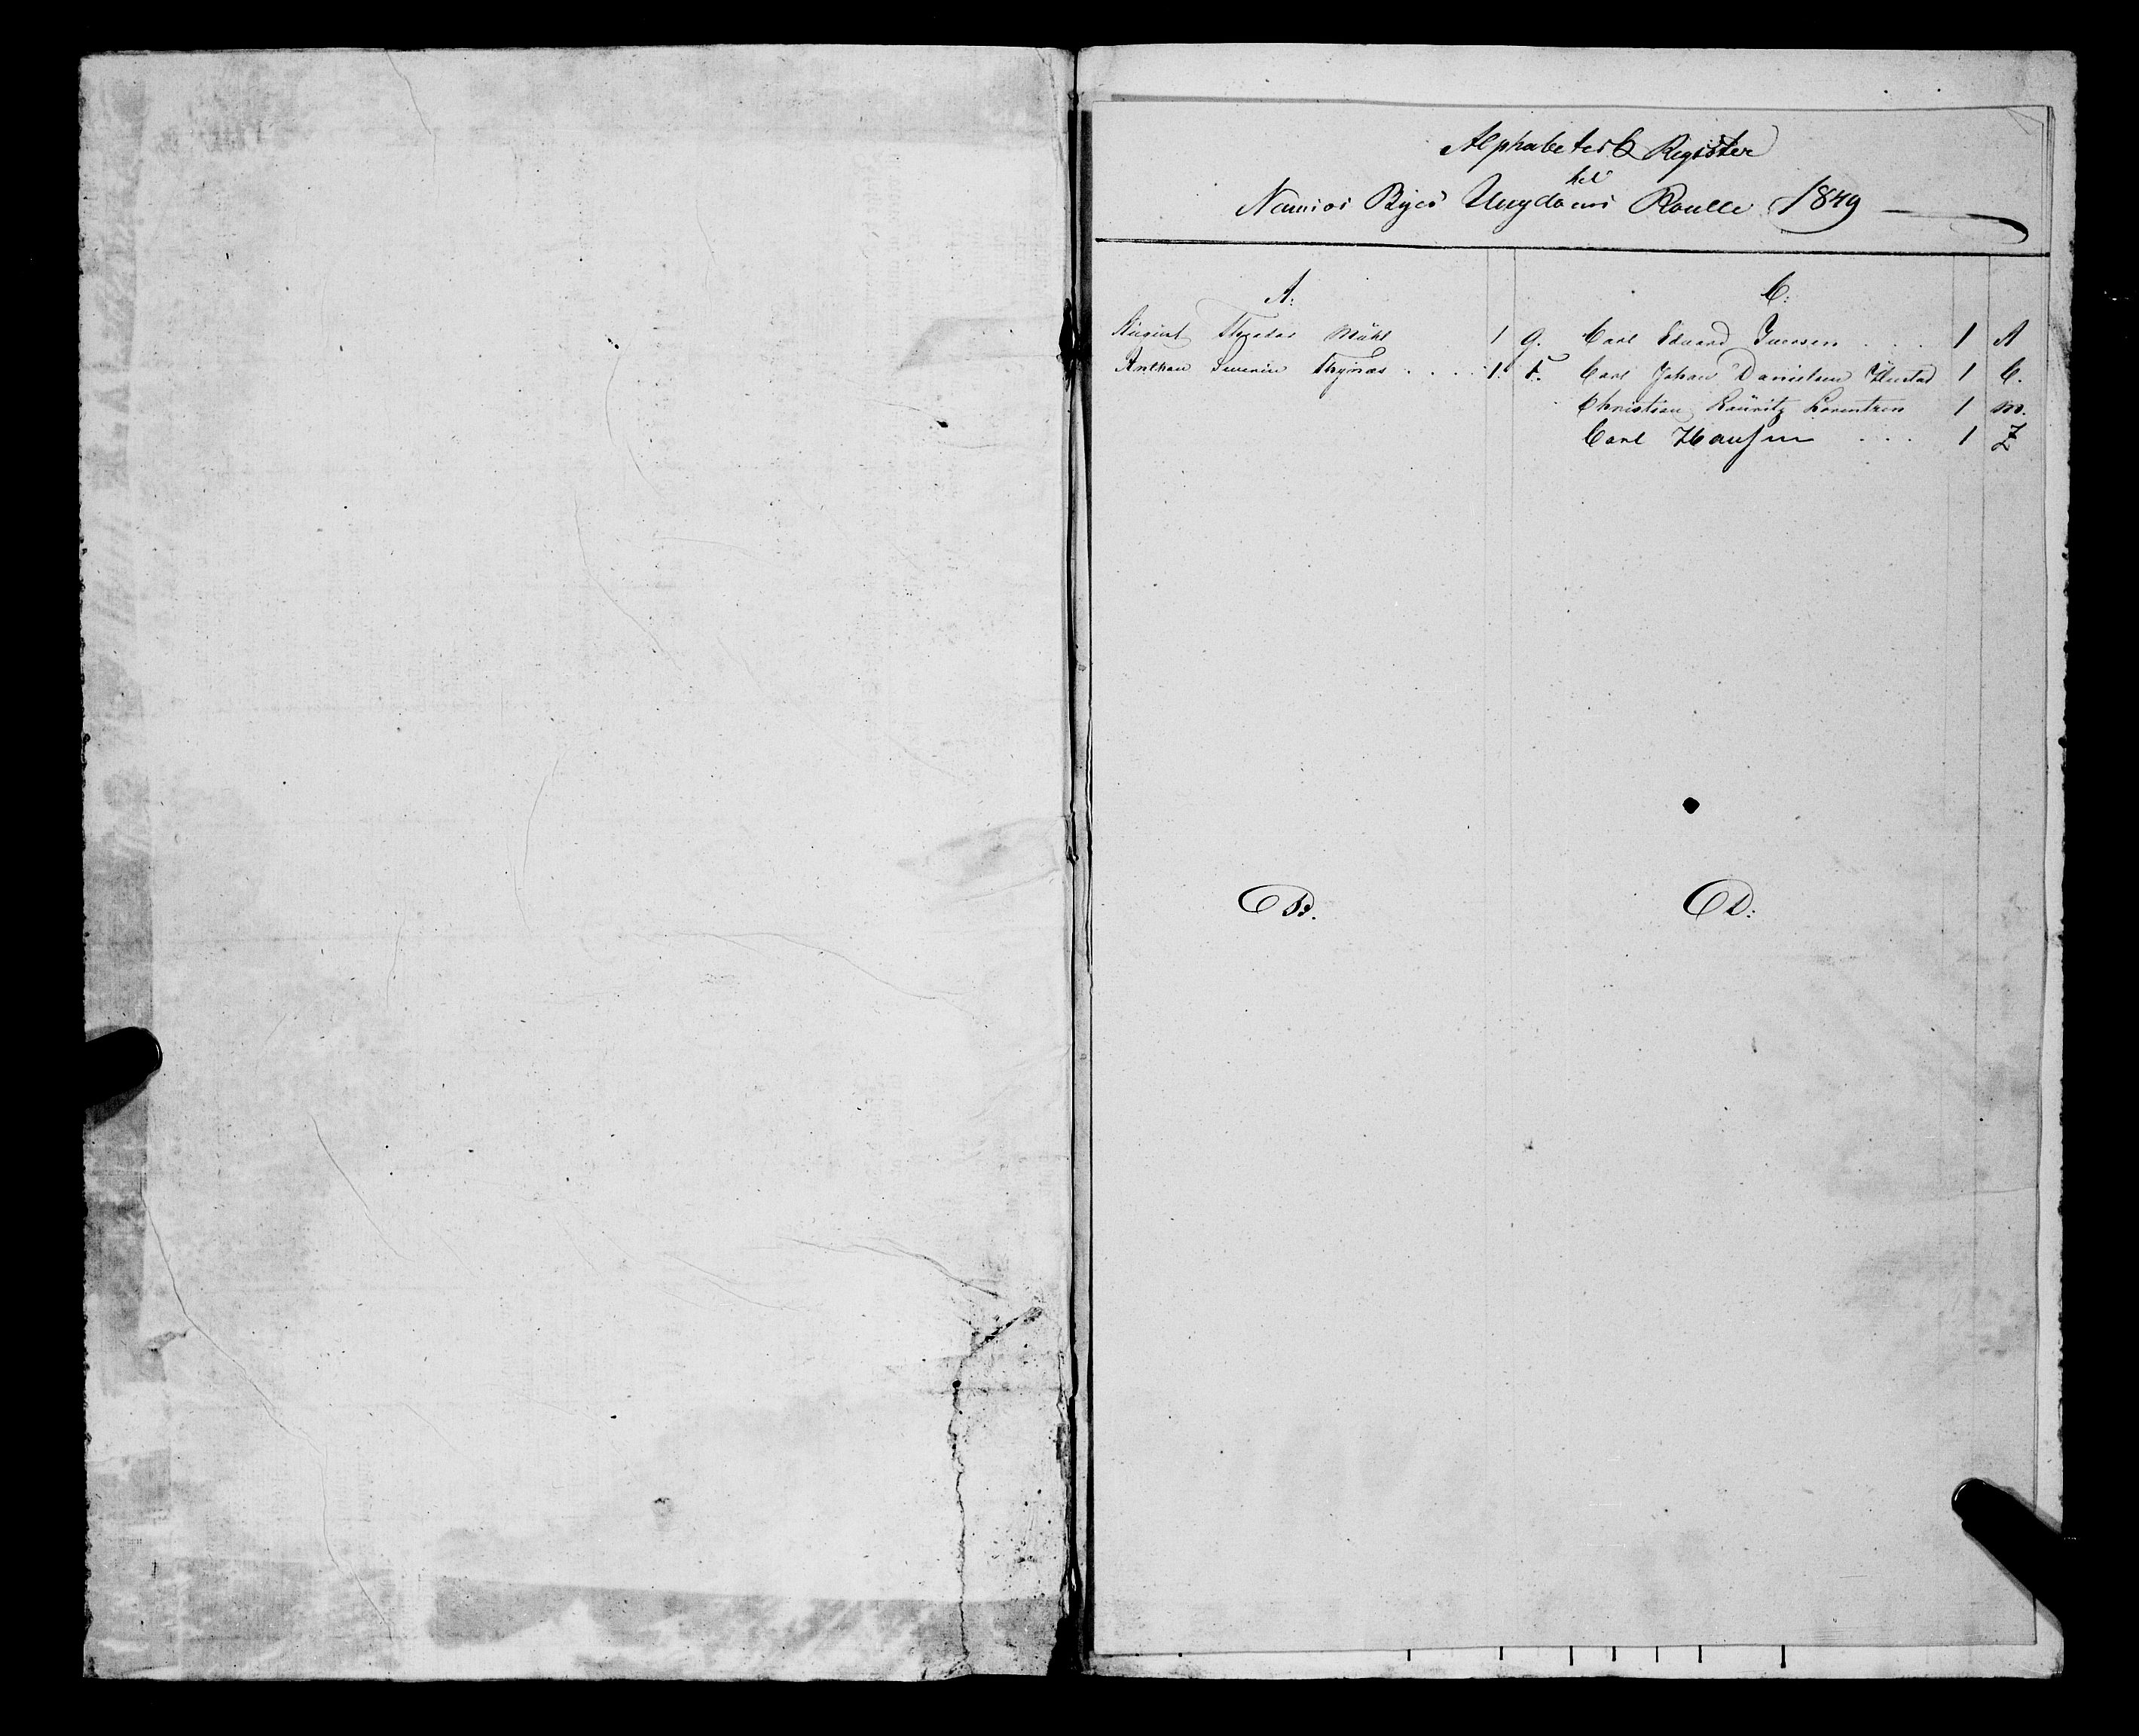 Alphabetisk Register
til
Namsos Byes Ungdoms Roulle 1849
A:
August Theodor Mühl 1 G.
Anthon Severin Thomas 1. F.
C:
Carl Eduard Iversen 1 A
Carl Johan Danielsen 1 C.
Christian Lauritz Lorentzen 1 M.
Carl Hansen 1 Z
B.
D: